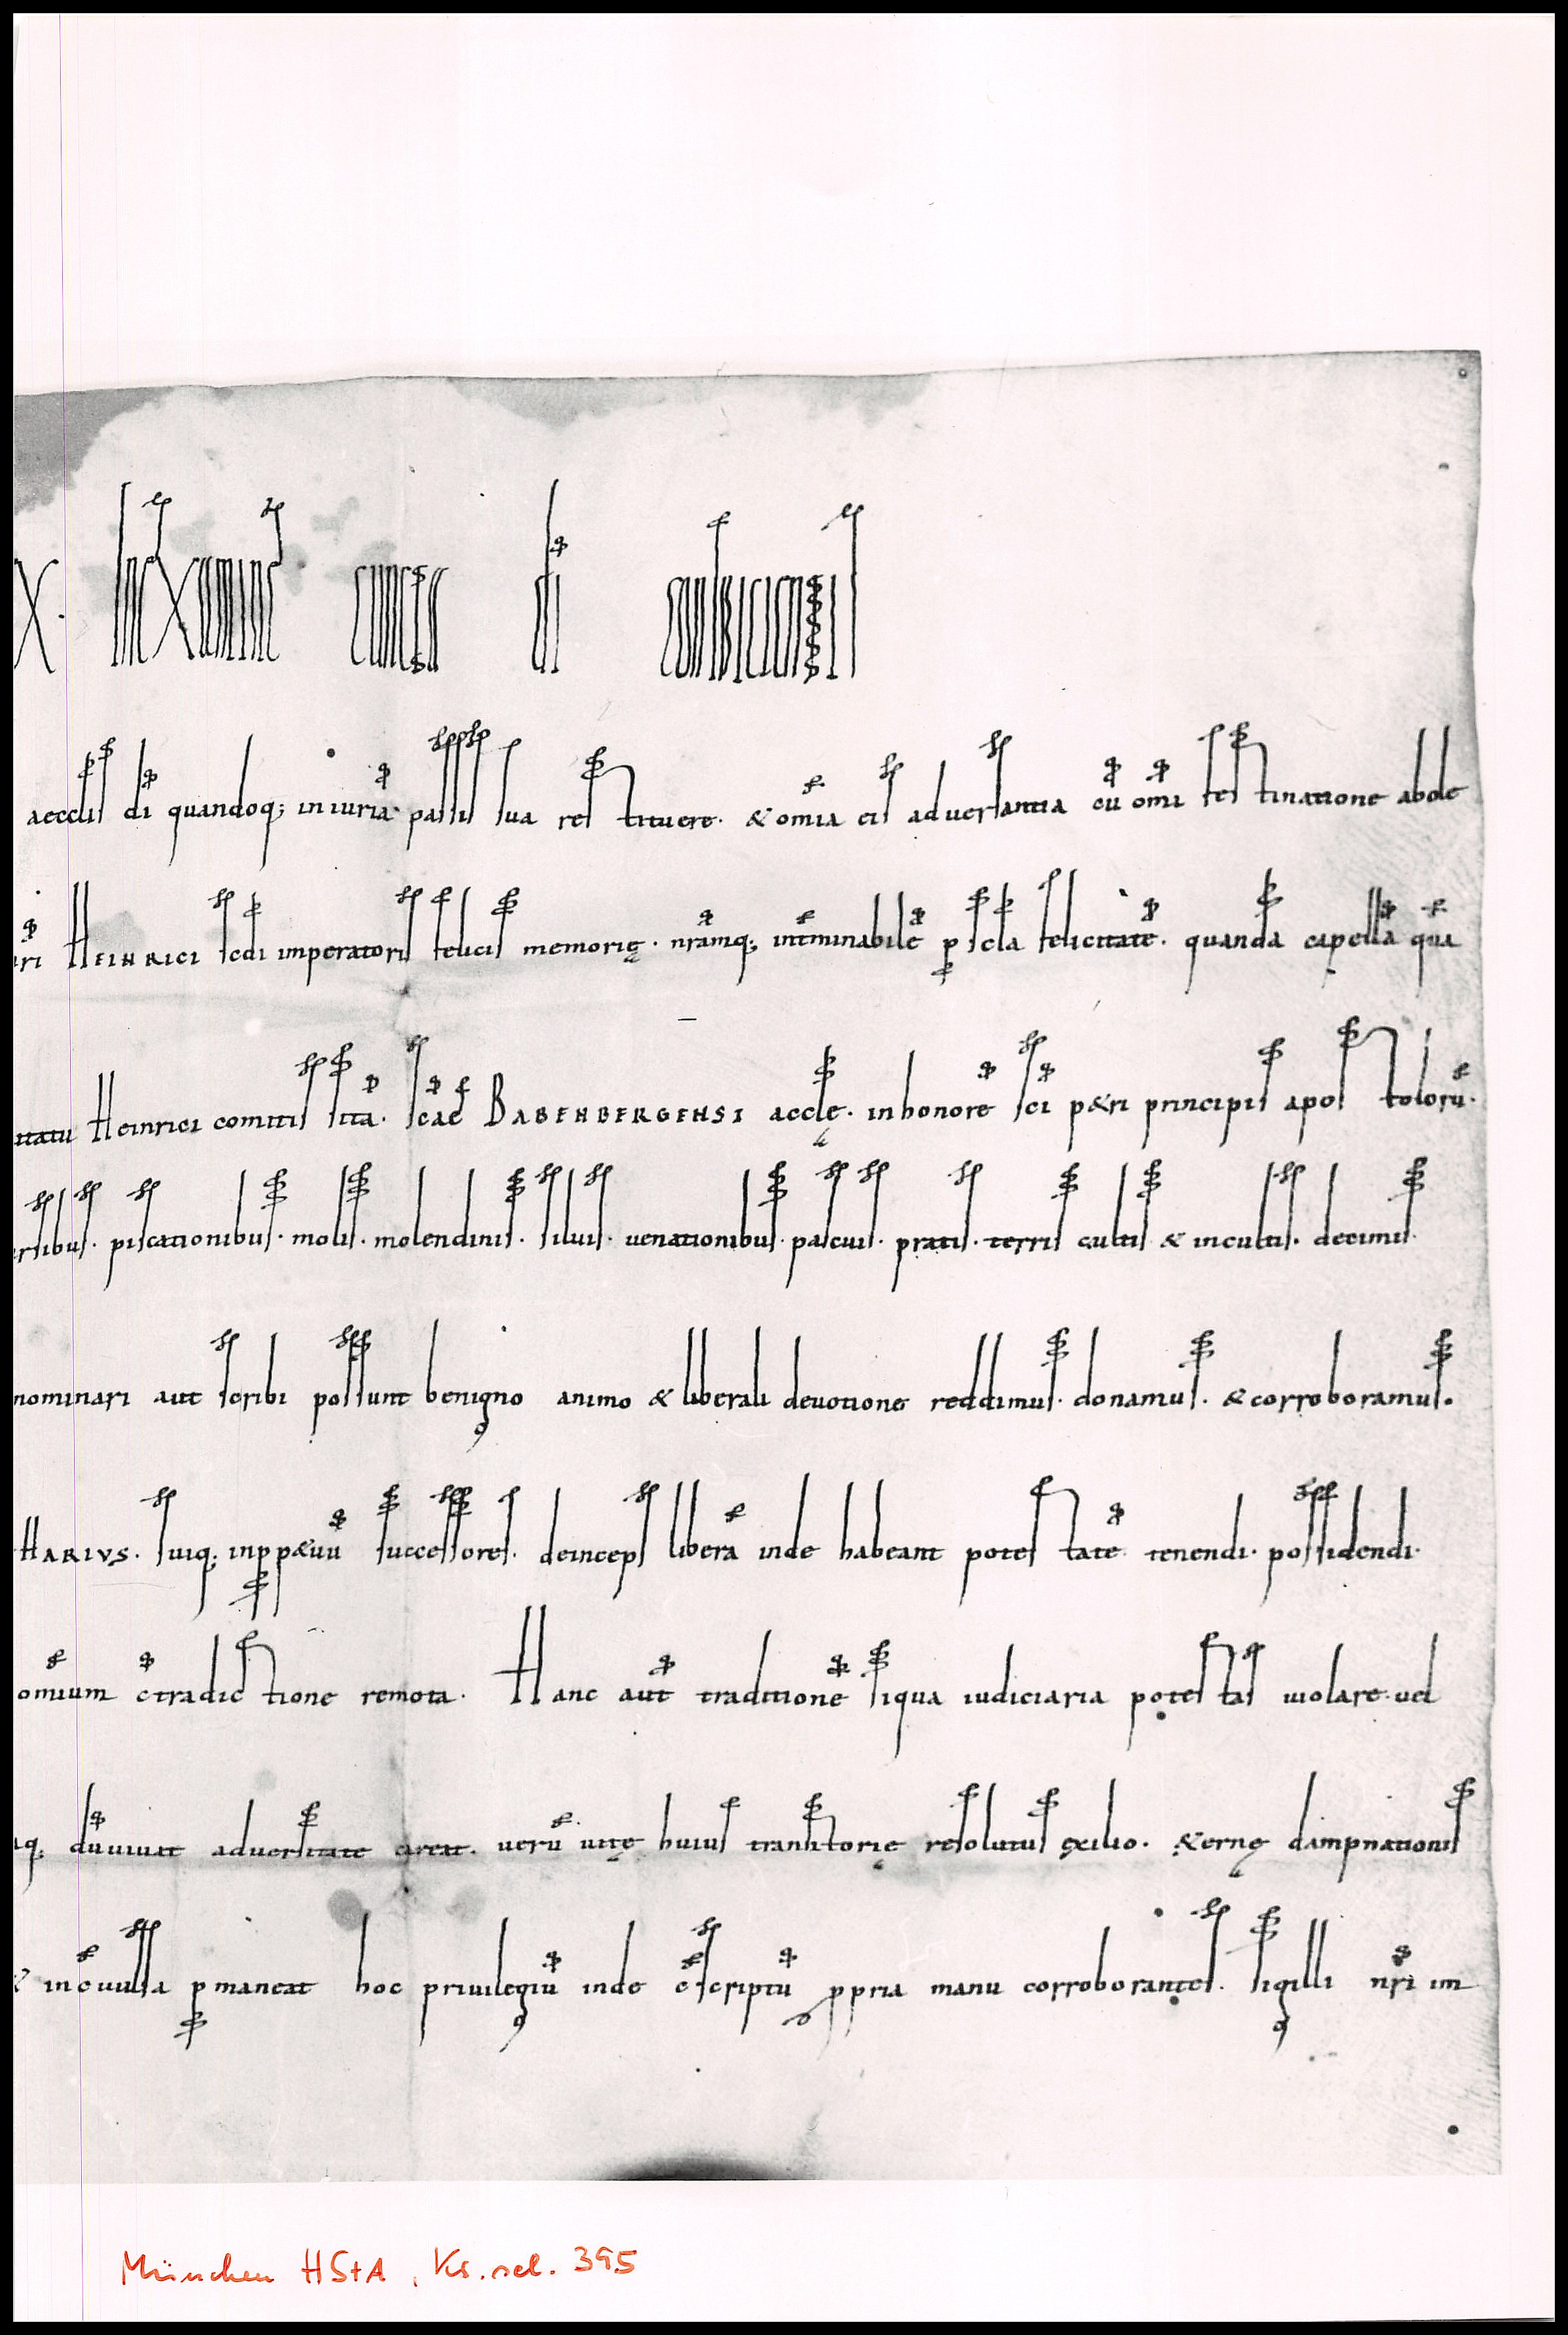 X. INEXAMINE CUNCTA DI CONSPICIENTIS
aecclis di quandoq; iniuriā passis sua restituere. & om̄ia eis adversantia cū om̄i festinatione abole
ri HEINRICI scdi imperatoris felicis memorię. nr̄amq; int̄minabilē p scla felicitatē. quandā capellā quā
itatu Heinrici comitis sitā. sc̄ae BABENBERGENSI aeccłę. inhonorē sc̄i p&ri principis apostolorū.
rsibus. piscationibus. molis. molendinis. siluis. uenationibus. pascuis. pratis. terris cultis & incultis. decimis.
nominari aut scribi possunt benigno animo & liberali deuotione reddimus. donamus. & corroboramus.
HARIVS. suiq; inpp&uū successores. deinceps liberā inde habeant potestatē tenendi. possidendi.
om̄ium c̄tradictione remota. Hanc aut̄ traditionē siqua iudiciaria potestas uiolare. uel
q; dū uiuit adversitate careat. uerū uitę huius transitorię resolutus exilio. &ernę dampnationis
& inc̄uulsa pmaneat hoc priuilegiū inde c̄scriptū ppria manu corroborantes. sigilli nr̄i im
München HStA, Ks. sel. 395